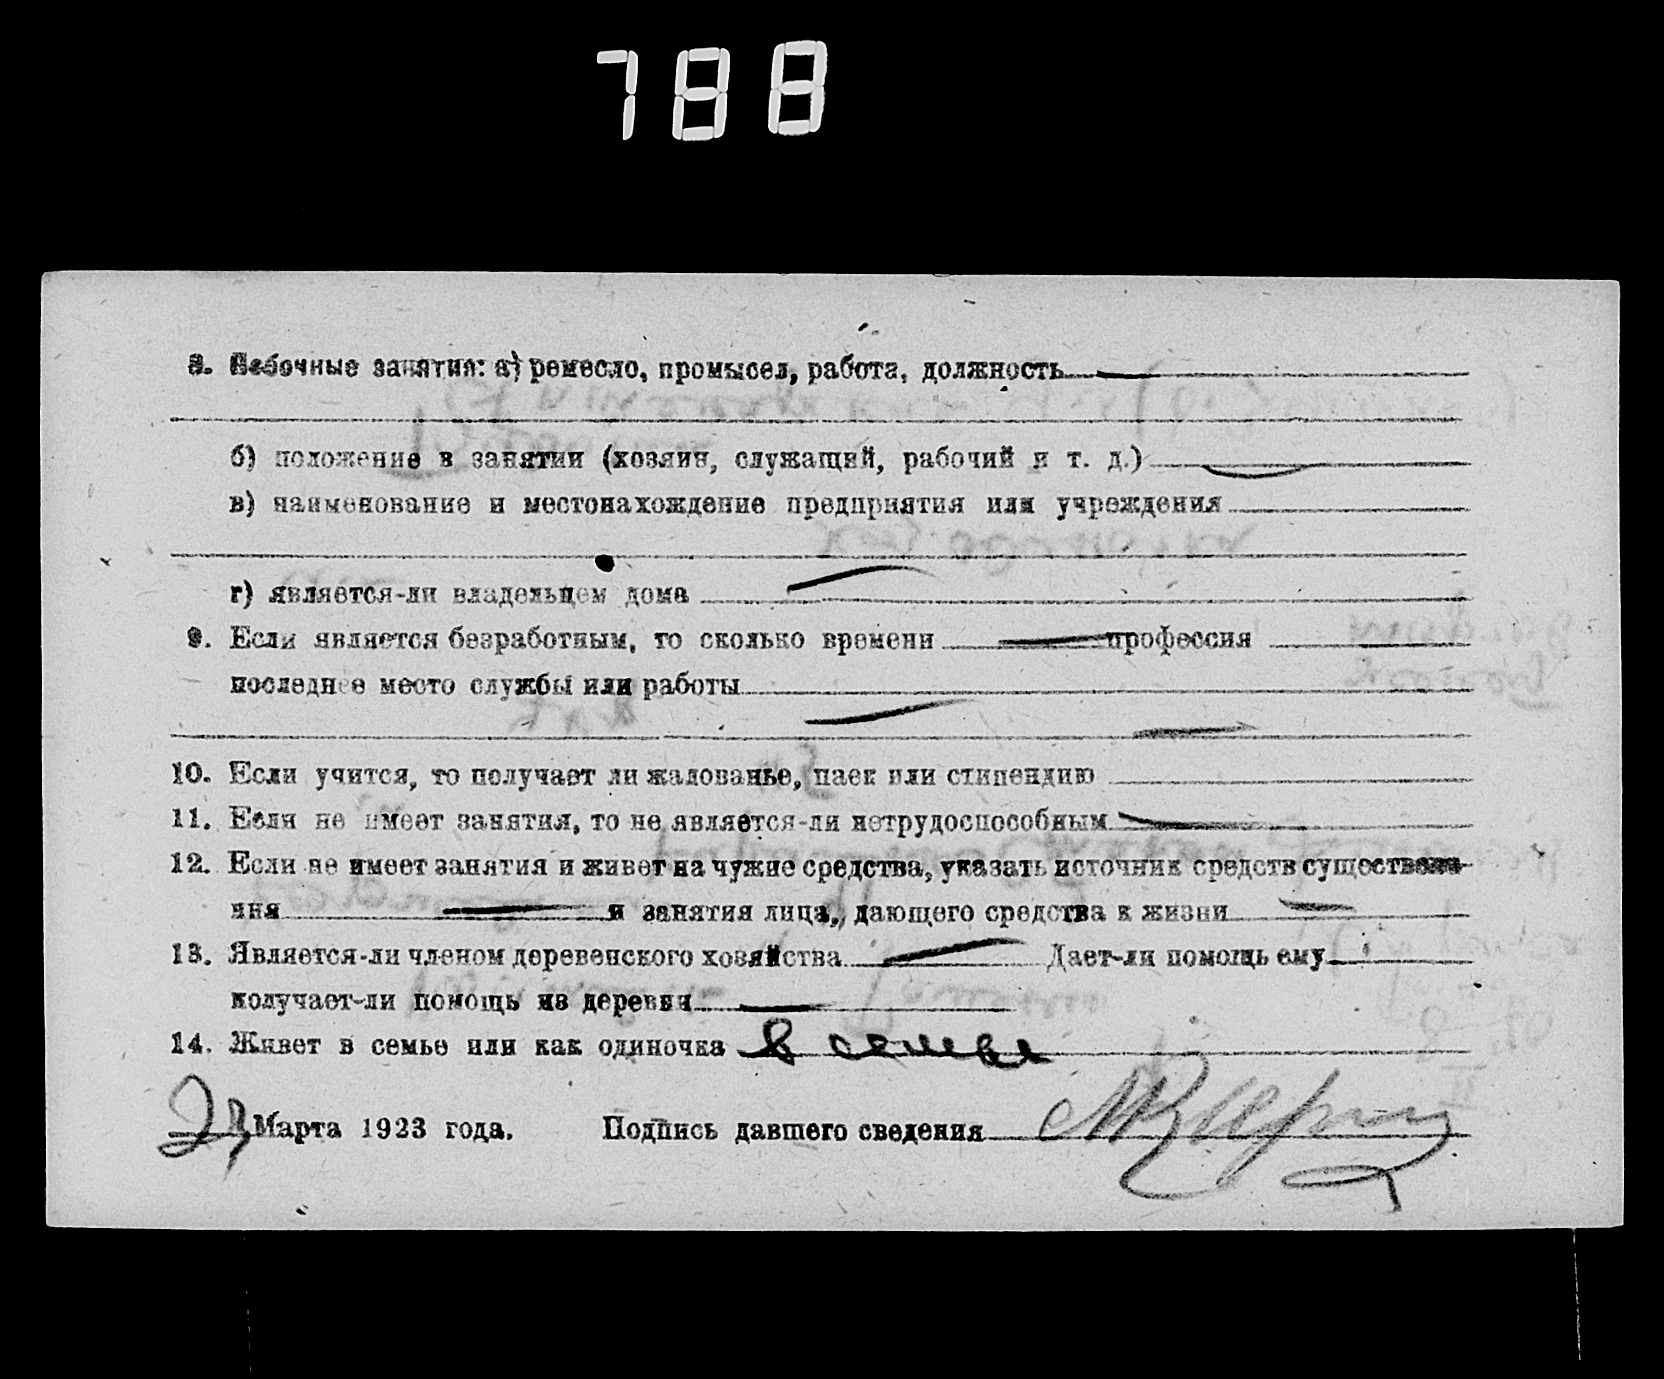 788
8. Побочные занятия: а) ремесло, промысел, работа, должность
б) положение в занятии (хозяин, служащий, рабочий и т. д.)
в) наименование и местонахождение предприятия или учреждения
г) является-ли владельцем дома
9. Если является безработным, то сколько времени профессия
последнее место службы или работы
10. Если учится, то получает ли жалованье, паек или стипендию
11. Если не имеет занятия, то не является-ли нетрудоспособным
12. Если не имеет занятия и живет на чужие средства, указать источник средств существова-
ния и занятия лица, дающего средства к жизни
13. Является-ли членом деревенского хозяйства Дает-ли помощь ему
получает-ли помощь из деревни
14. Живет в семье или как одиночка в семье
Марта 1923 года. Подпись давшего сведения